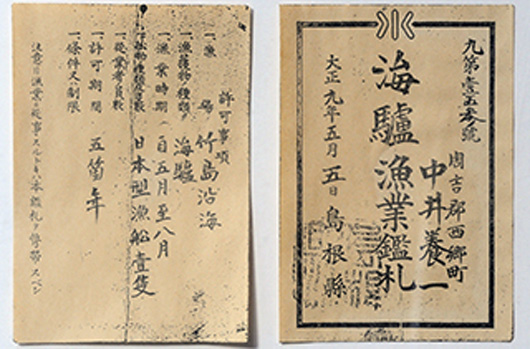 許可事項
一、漁場 竹島沿海
一、漁獲物種類 海驢
一、漁業時期 自五月至八月
日本型漁船壹隻
一、從業者員數
一、許可期間 五箇年
一、條件又ハ制限
注意 漁業ニ從事スルトキハ本鑑札ヲ攜帶スベシ
九第壹五號
周吉郡西郷町
中井養一
海驢漁業鑑札
大正九年五月五日 島根縣